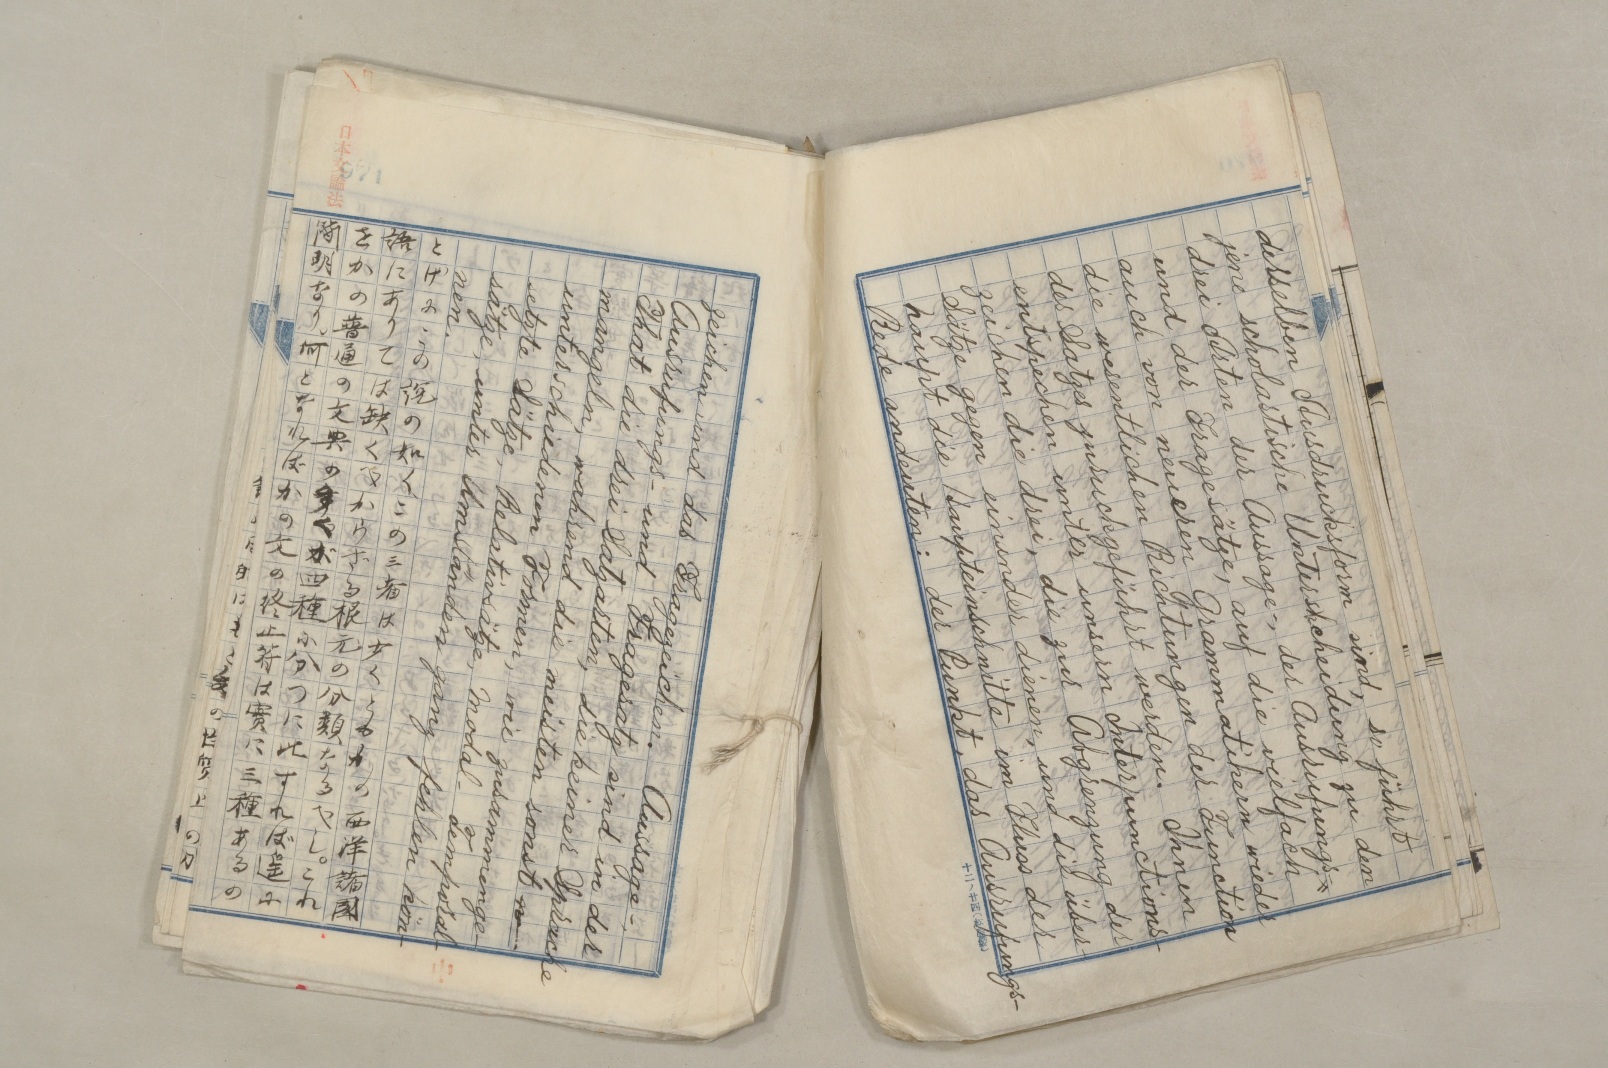 desselben Ausdrucksform sind, so führt
jene scholastische Unterscheidung zu den
drei Arten der Aussage-, der Ausrufungs-
und der Fragesätze, auf die vielfach
auch von neueren Grammatikern wieder
die wesentlichen Richtungen der Function
des Satzes zurückgeführt werden. Ihnen
entspechen unter unsern Interpunctions-
zeichen die drei, die zur Abgrenzung der
Sätze gegen einander dienen, und die über-
haupt die Haupteinschnitte im Fluss der
Rede andeuten: der Punkt, das Ausrufungs-
zeichen und das Fragezeichen. Aussage-,
Ausrufungs- und Fragesatz sind in der
That die drei Satzarten, die keiner Sprache
mangeln, während die meisten sonst
unterschiedenen Formen, wie zusammenge-
setzte Sätze, Relativsätze, modal- temporal-
sätze, unter Umständen ganz fehlen kön-
nen.
とげにこの説の如くこの三者は少くともかの西洋諸国
語にありては缺くべからざる根元の分類なるべし。これ
をかの普通の文典の多くが四種に分つに比すれば遥に
簡明なり、何となればかの文の終止符は實に三種あるの
日本文法論
971